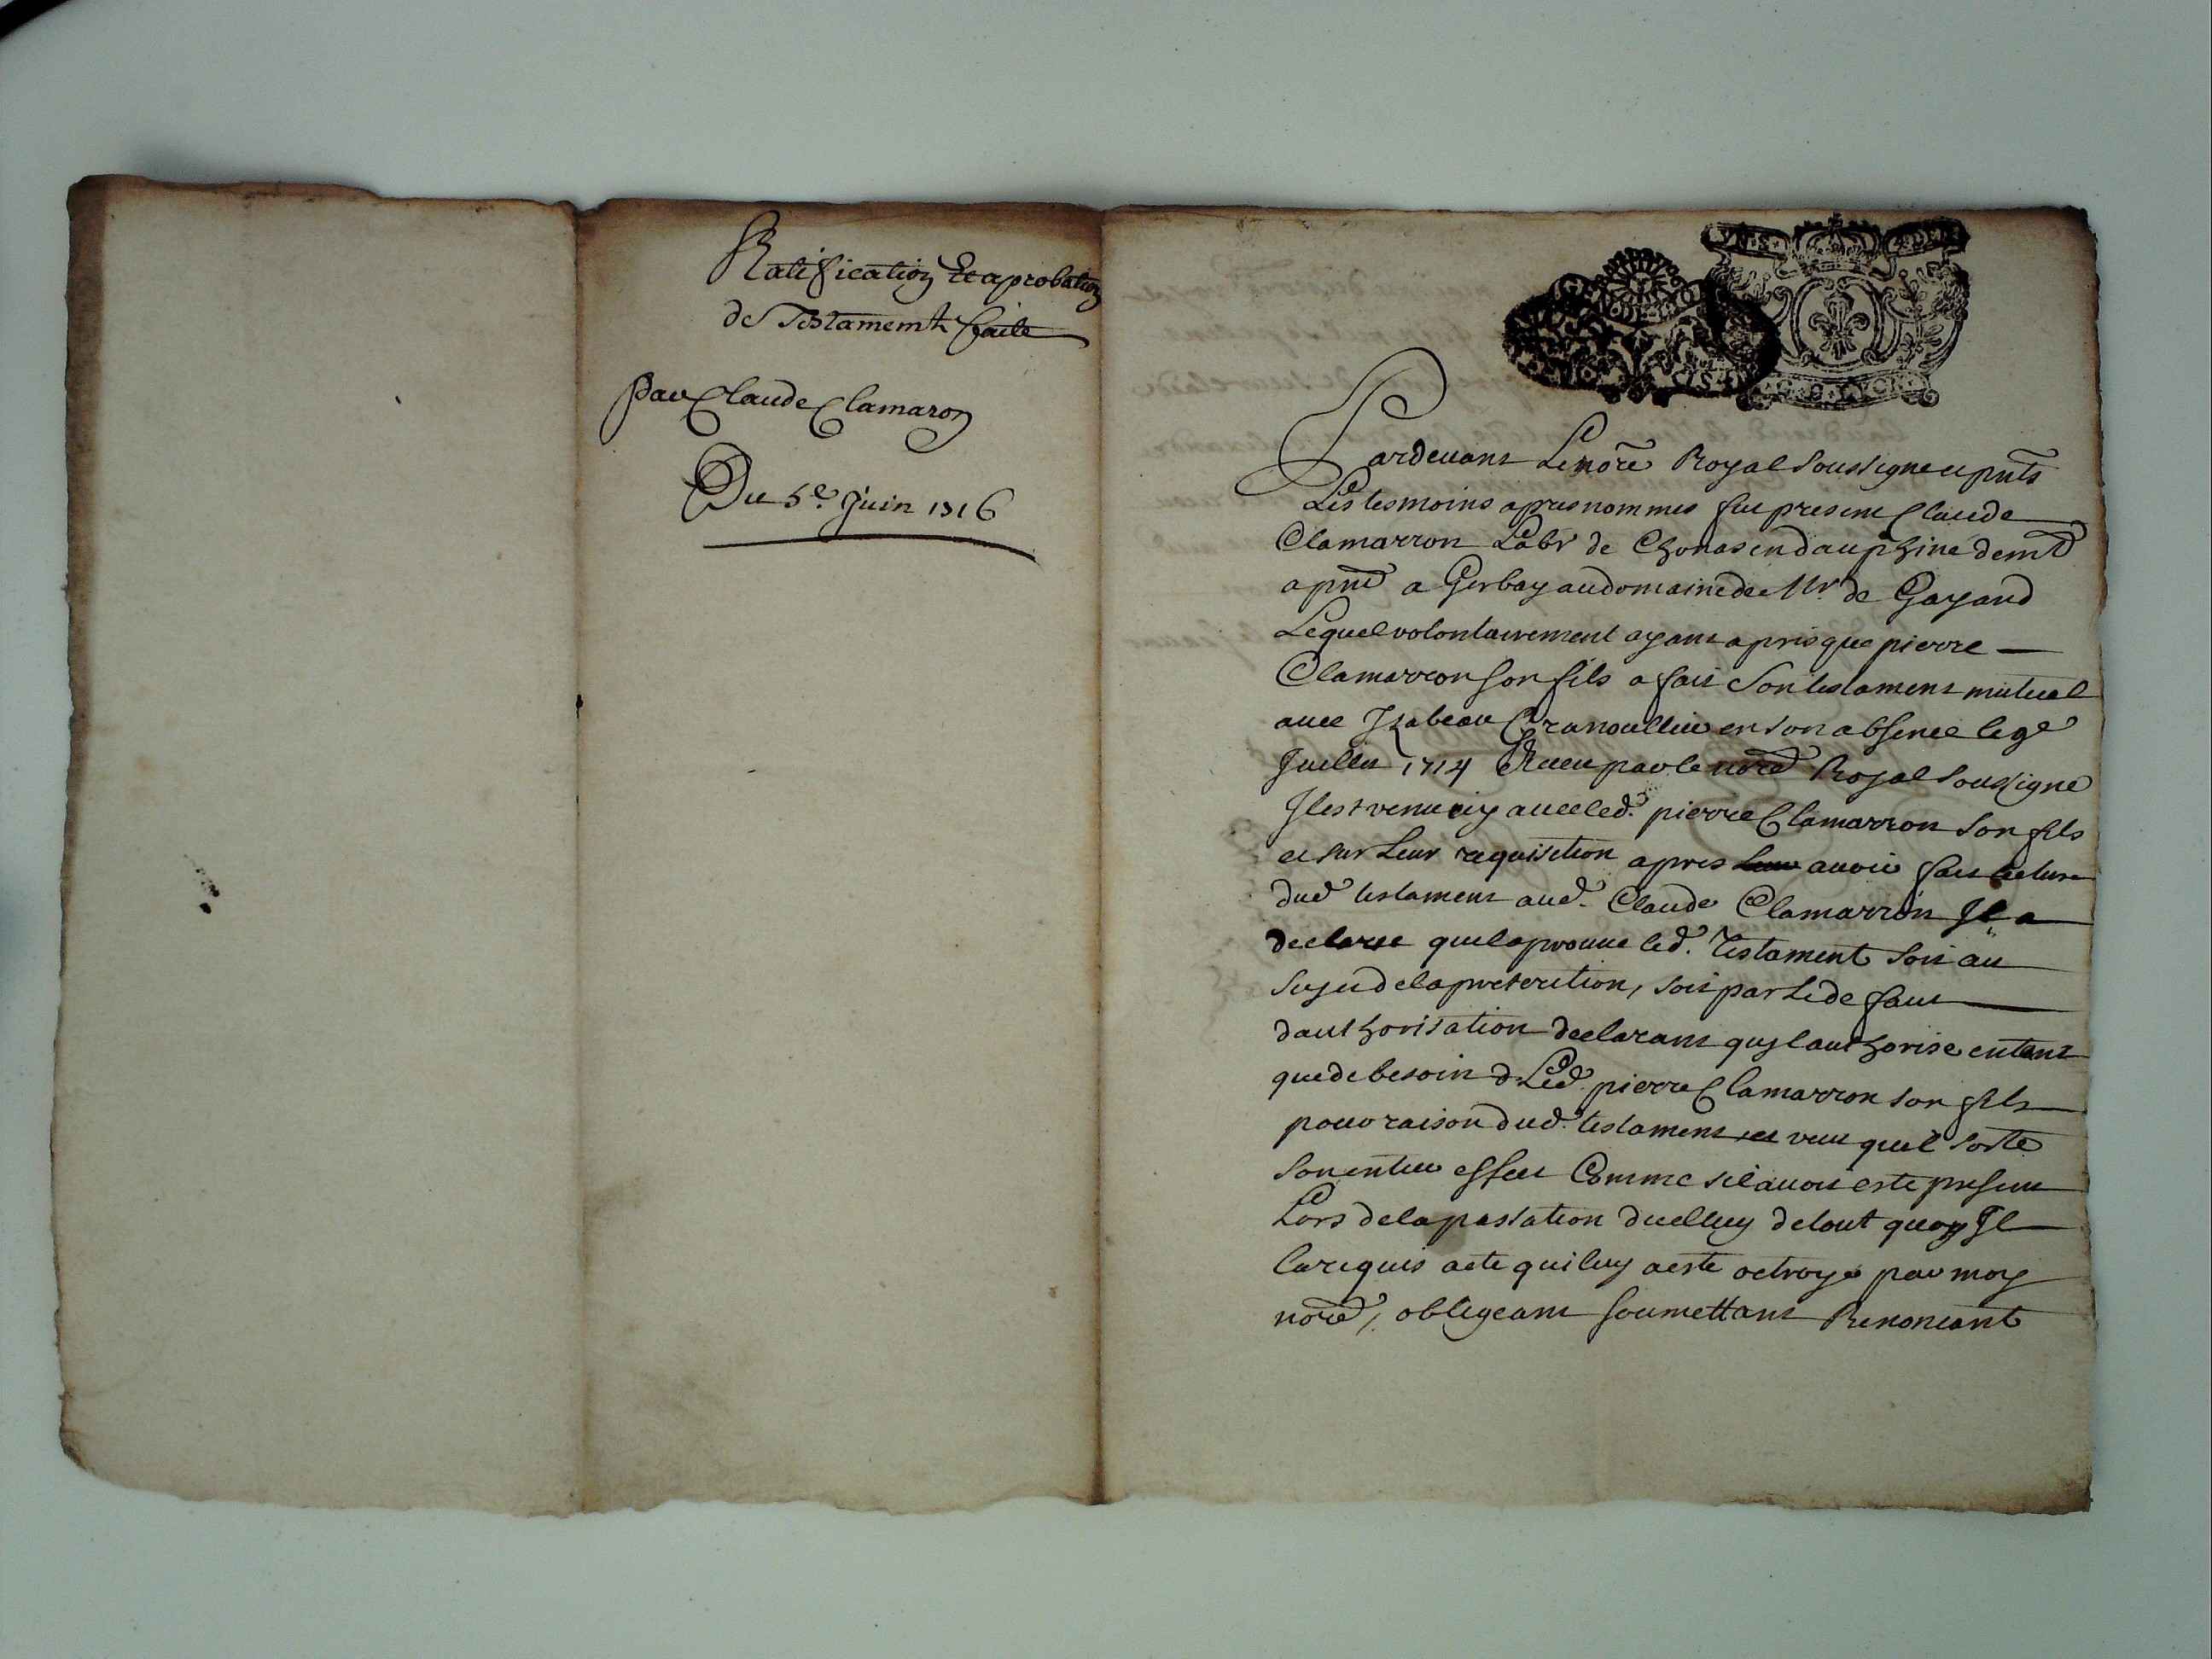 Ratification Et aprobation
de Testament faite
Par Claude Clamaron
Du 5e. Juin 1716
Pardevant Le nore Royal soussigne et pnts
Les tesmoins apres nommes fut present Claude
Clamarron Labr de Chonas en dauphine demt
a pnt a Gerbay au domaine de Mr de Gayand
Lequel volontairement ayant apris que pierre
Clamarron son fils a fait son testament mutuel
avec Izabeau Granoullie en son absence le 9e
Juillet 1714 Receu par le nore Royal soussigne
Il est venu icy avec led. pierre Clamarron son fils
et sur Leur requisition apres avoir fait lecture
dud testament aud. Claude Clamarron Il a
declare quil aprouve led. Testament soit au
sujet de la preterition, soit par le defaut
dauthorisation declarant quil authorise entant
que de besoin Led. pierre Clamarron son fils
pour raison dud. testament et veut quil sorte
son entier effect Comme sil avoit este present
Lors de la passation dicelluy de tout quoy Il
a requis acte qui luy a este octroye par moy
nore, obligeant soumettant Renoncant